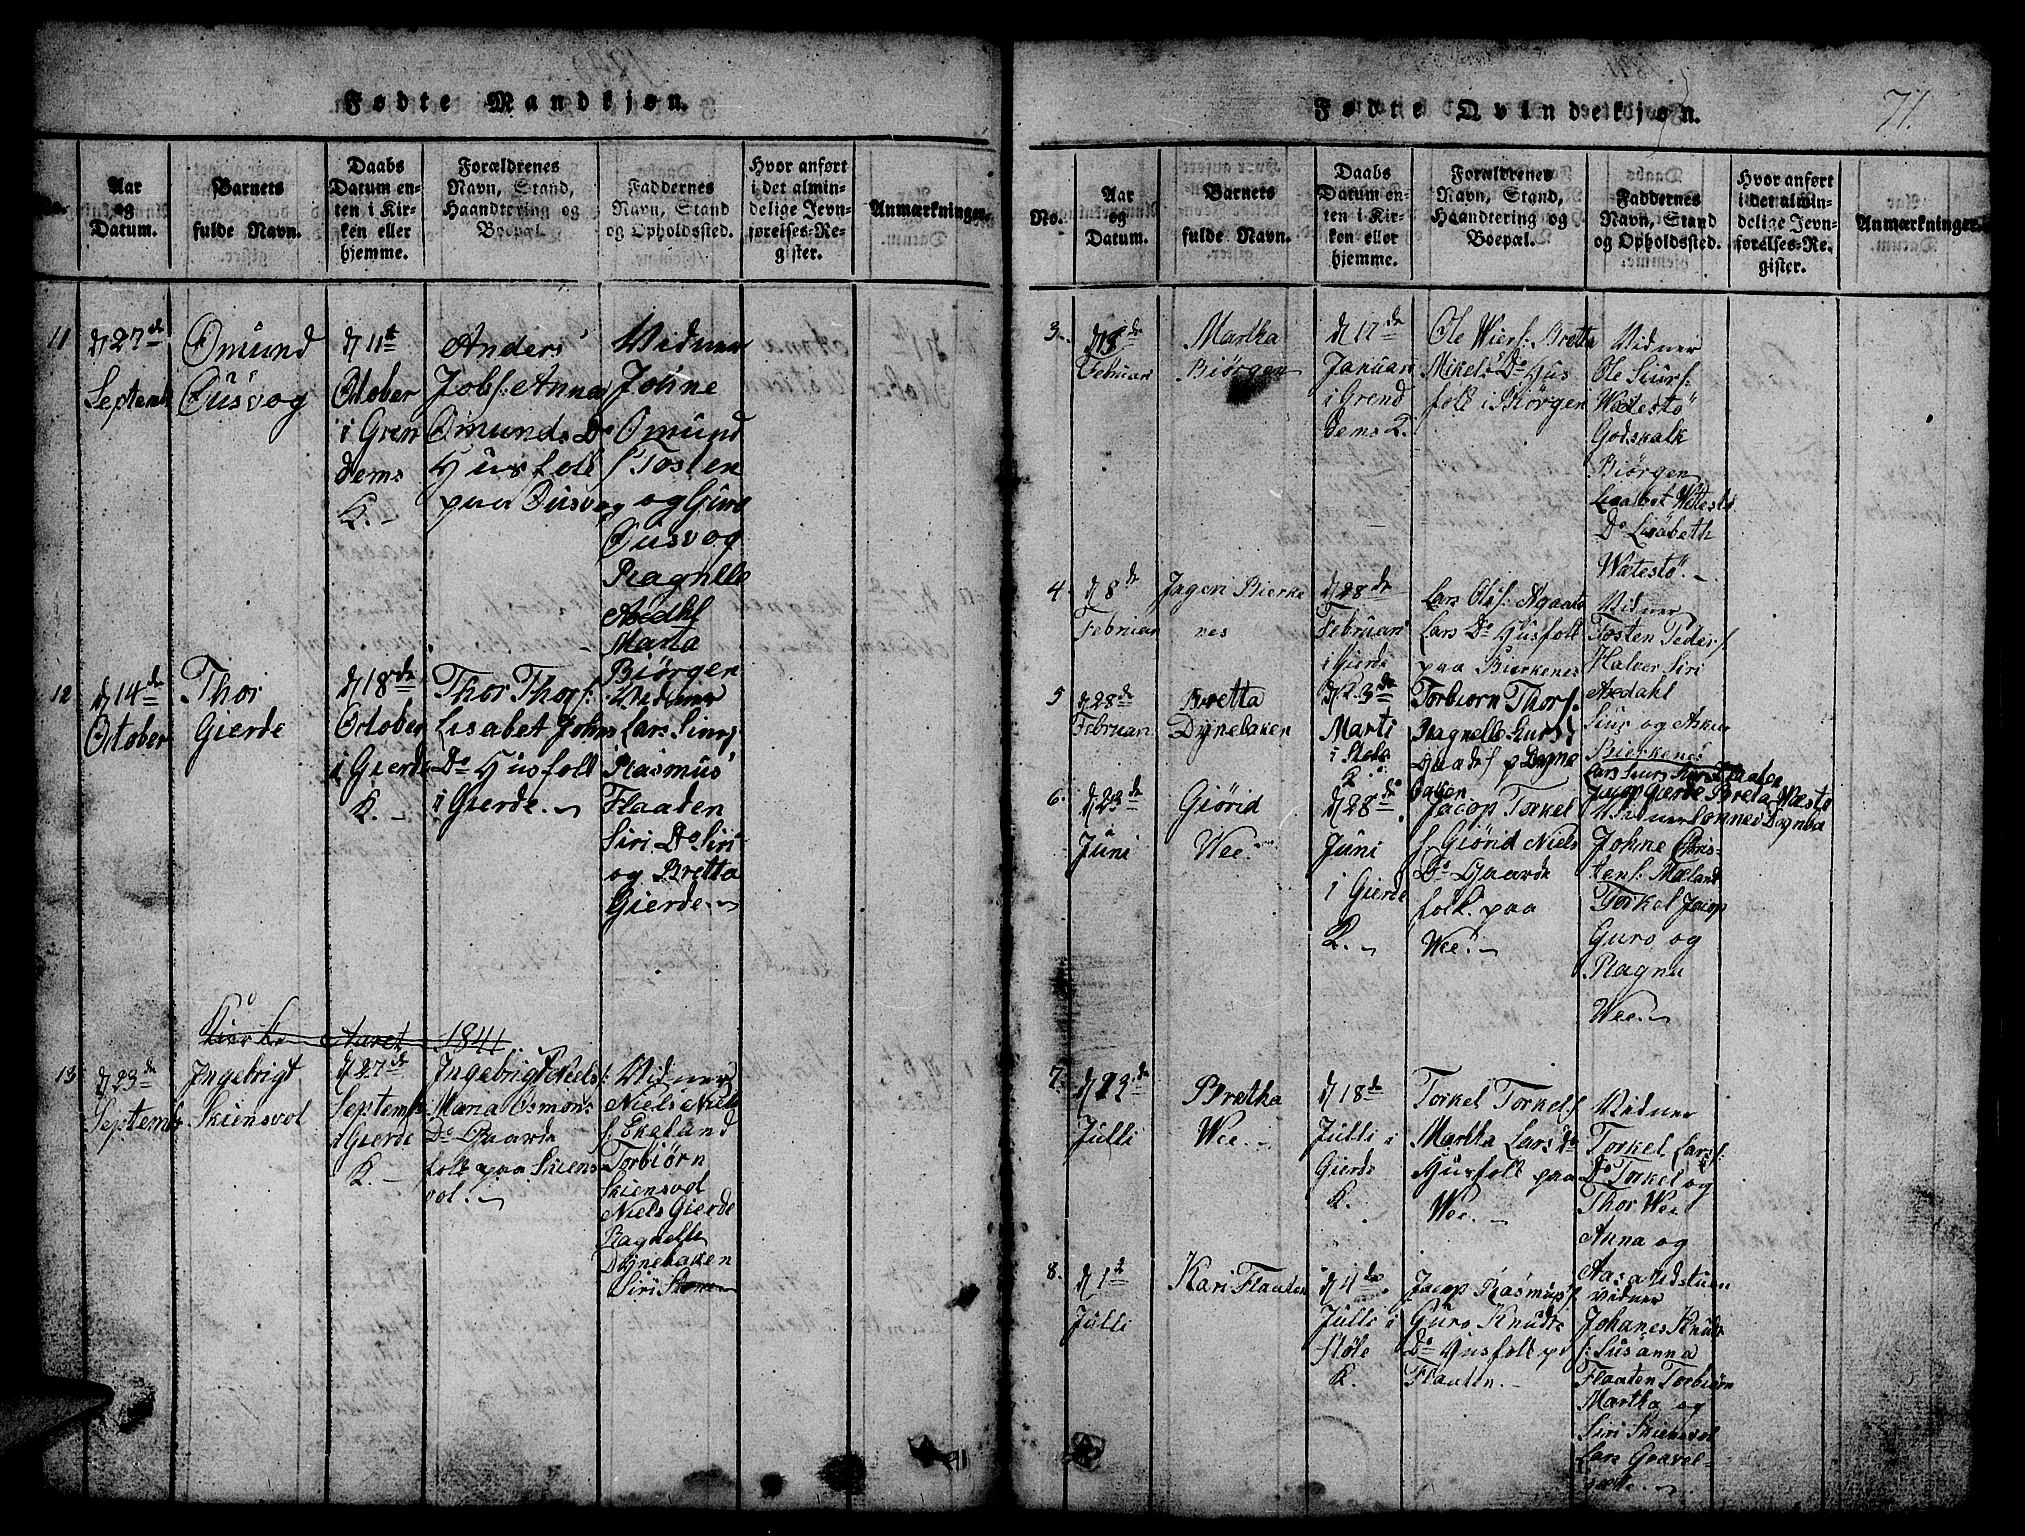 Fødte Mandkjøn.
No.
Aar
og
Datum.
Barnets
fulde Navn.
Daabs
Datum en-
ten i Kir-
ken eller
hjemme.
Forældrenes
Navn, Stand,
Haandtering og
Boepæl.
Faddernes
Navn, Stand
og Opholdssted.
Hvor anført
i det almin-
delige Jevn-
førelses-Re-
gister.
Anmærkninger.
11
d 27de
Septemb
Omund
Øusvog
d 11te
October
i Gren
dems
K.
Anders
Jobs: Anna
Omunds Do
Husfolk
paa Øusvog
Vidner
Johne
Omund
s Tosten
og Guro
Øusvog
Ragnelle
Aædkl
Marta
Biørgen
12
d 14de
October
Thor
Gierde
d 18de
October
i Gierde
K.
Thor Thors:
Lisabet Johns
Do Husfolk
i Gierde.
Vidner
Lars Siurs
Rasmus
Flaaten
Siri Do Siri
og Bretta
Gierde.
Kierke Aaret 1841
13
d 23de
Septemb
Ingebrigt
Skiensvol
d 27de
Septemb
i Gierde
K.
Ingebrigt Niels
Mana Osmons
Do Gaarde
folk paa Skiens
vol.
Vidner
Niels Niels
s: Ekeland
Torbiørn
Skiensvol
Niels Gierde
Ragnelle
Dynebaken
Siri
Fødte Qvindekjøn.
71.
No.
Aar
og
Datum.
Barnets
fulde Navn.
Daabs
Datum en-
ten i Kir-
ken eller
hjemme.
Forældrenes
Navn, Stand,
Haandtering og
Boepæl.
Faddernes
Navn, Stand
og Opholdssted.
Hvor anført
i det almin-
delige Jevn-
førelses-Re-
gister.
Anmærkninger.
3.
Februari
Martha
Biørgen
d 17de
Januari
i Grend
dems K.
Ole Siurs: Bretta
Mikels Do Hus
folk i Biørgen
Vidner
Ole Siurs:
Wætestø
Godskalk
Biørgen
Wætestø
Do Lisabeth
Wætestø.
4.
d 8de
Februari
Jageri Bierke
nes
d 28de
Februari
i Gierde
Lars Ols: Agaata
Lars Do Husfolk
paa Bierkenes
Vidner
Tosten Peders
Halver Siri
Aædahl
Siur og Anna
Bierkenes
5
d 28de
Februari
Bretta
Dynebaken
d 23de
Marti
i Støle
K.
Torbiørn Thors:
Ragnelle Lars
Gaardf p Dyne
baken
Jacop Gierde Breta Wæstø
6.
d 23de
Juni
Giørid
Wee.
d 28de
Juni
i Gierde
K.
Jacop Torkel
s Giørid Niels
Do Gaarde
folk paa
Wee.
Johne Chris-
tens: Mæland
Torkel Jacop
Guro og
Ragna
Wee.
7.
d 13de
Julli
Bretha
Wee.
d 18de
Julli i
Gierde
K.
Torkel Torkels
Martha Lars Do
Husfolk paa
Wee.
Vidner
Torkel Lars:
Do Torkel og
Thor Wee
Anna og
Aasa Udstuen
8.
d 1te
Julli
Kari Flaaten
d 4de
Julli i
Støle
K.
Jacop Rasmus
Guro Knudts
Do Husfolk pa
Flaaten.
Vidner
Johanes Knud
s: Susanna
Flaaten Torbiørn
Martha og
Siri Skiensvol
Lars Graavel-